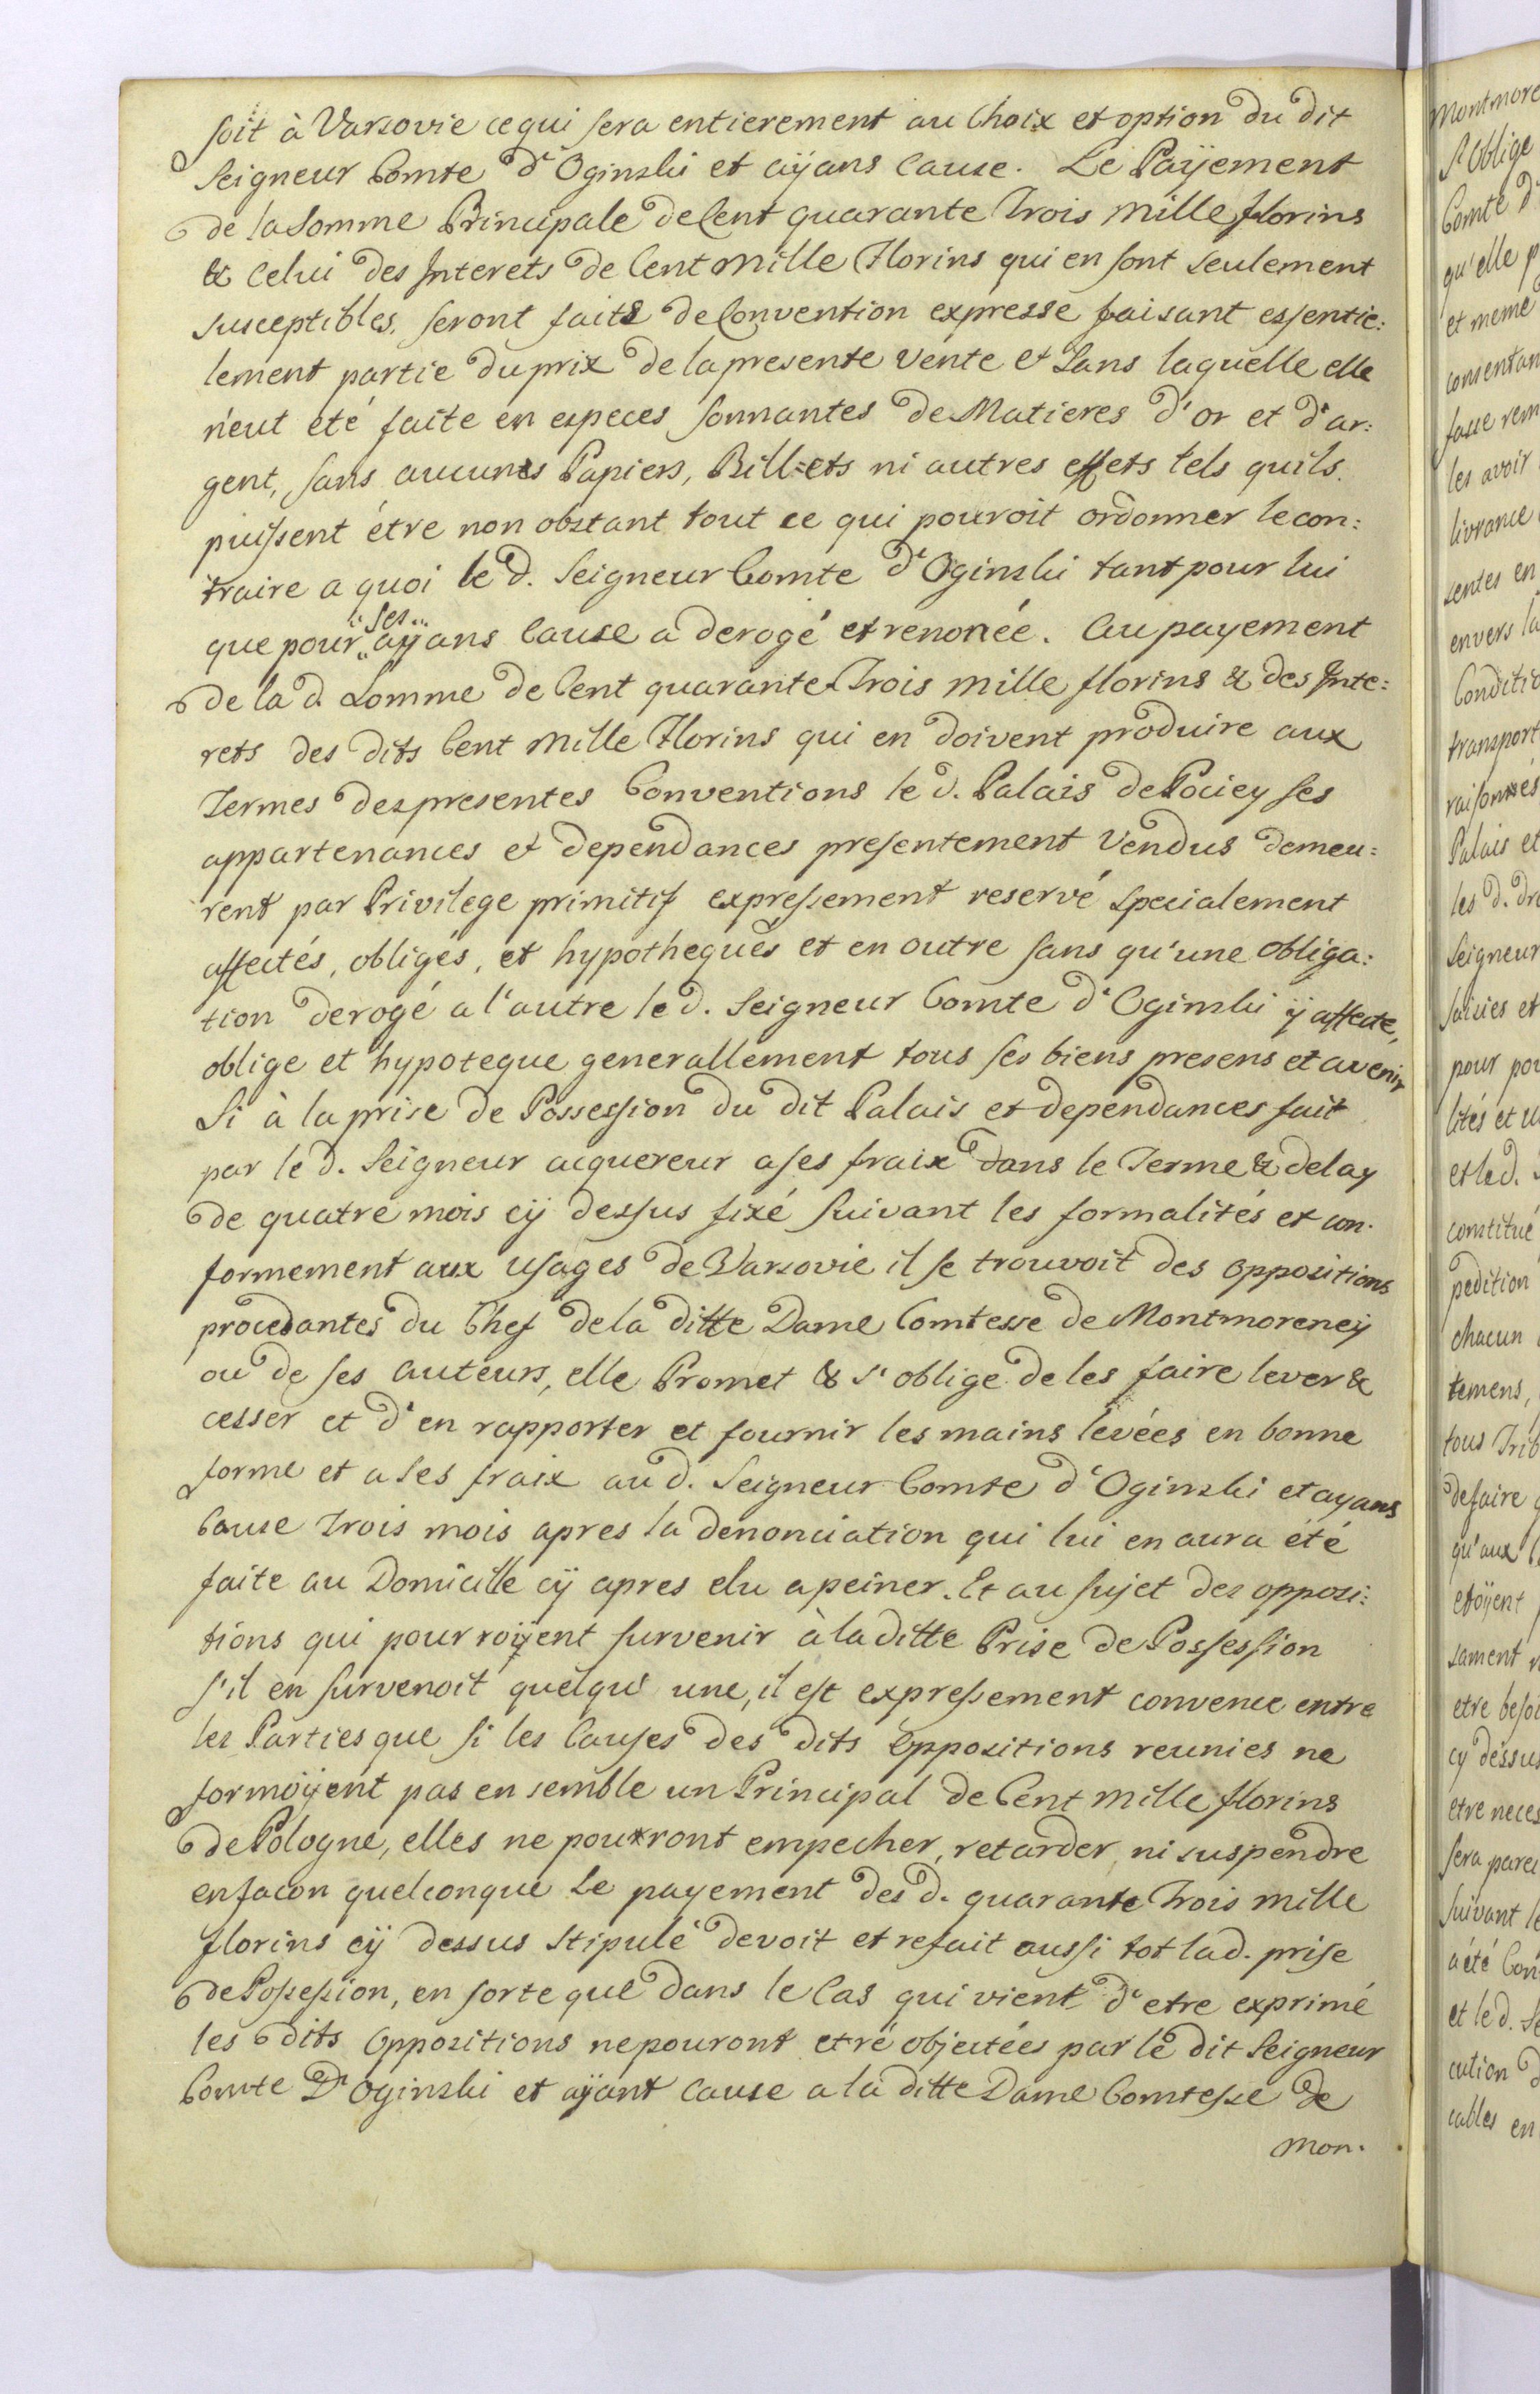 soit à Varsovie ce qui sera entierement au Choix et option du dit
Seigneur Comte d'Oginski et aÿans Cause. Le Paÿement
de la Somme Principale de Cent quarante Trois mille florins
& Celui des Interets de Cent mille Florins qui en sont seulement
susceptibles, seront faits de Convention expresse faisant essentie:
lement partie du prix de la presente Vente et Sans laquelle elle
n'eut eté faite en especes sonnantes de Matieres d'or et d'ar:
gent, sans aucunes Papiers, Bill=ets ni autres effets tels quils
puissent étre non obstant tout ce qui pouroit ordonner le con:
traire a quoi le d. Seigneur Comte d'Oginski tant pour lui
que pour ses aÿans Cause a derogé et renoncée. Au payement
de la d. Somme de Cent quarante Trois mille florins & des Inte:
rets des dits Cent mille Florins qui en doivent produire aux
Termes des presentes Conventions le d. Palais de Pociey ses
appartenances et dependances presentement Vendus demeu:
rent par Privilege primitif expressement reservé specialement
affectés, obligés, et hypothequés et en outre sans qu'une obliga:
tion derogé a l'autre le d. Seigneur Comte d'Oginski ÿ affecte,
oblige et hypoteque generallement tous ses biens presens et avenir
Si à la prise de Possession du dit Palais et dependances fait
par le d. Seigneur acquereur a ses fraix dans le Terme & delay
de quatre mois cÿ dessus fixé suivant les formalités et con.
formement aux usages de Varsovie il se trouvoit des oppositions
procedantes du Chef de la ditte Dame Comtesse de Montmorencÿ
ou de ses Auteurs, elle Promet & s'oblige de les faire lever &
cesser et d'en rapporter et fournir les mains levées en bonne
forme et a ses fraix au d. Seigneur Comte d'Oginski et ayans
Cause Trois mois apres la denonciation qui lui en aura été
faite au Domicille cÿ apres elu a peiner. Et au sujet des opposi:
tions qui pourroÿent survenir à la ditte Prise de Possession
s'il en survenoit quelqu' une, il est expressement convenu entre
les Parties que si les Causes des dits Oppositions reunies ne
formoÿent pas en semble un Principal de Cent mille florins
de Pologne, elles ne pourront empecher, retarder, ni suspendre
en facon quelconque Le payement des d. quarante Trois mille
florins cÿ dessus stipulé devoit et refait aussi tot la d. prise
de Possession, en sorte que dans le Cas qui vient d'etre exprimé
les dits Oppositions ne pouront etré objectées par le dit Seigneur
Comte D'Oginski et aÿant Cause a la ditte Dame Comtesse de
Mon.